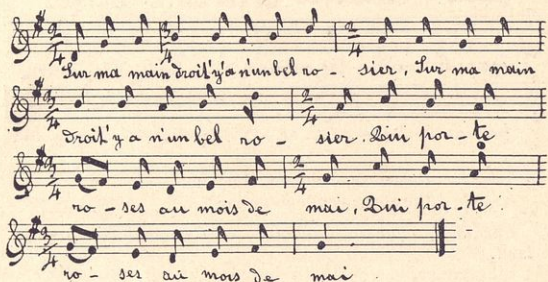 Sur ma main droit' y'a n'un bel ro - sier, Sur ma main
droit' y a n'un bel ro - sier. Qui por - te
ro - ses au mois de mai, Qui por - te
ro - ses au mois de mai